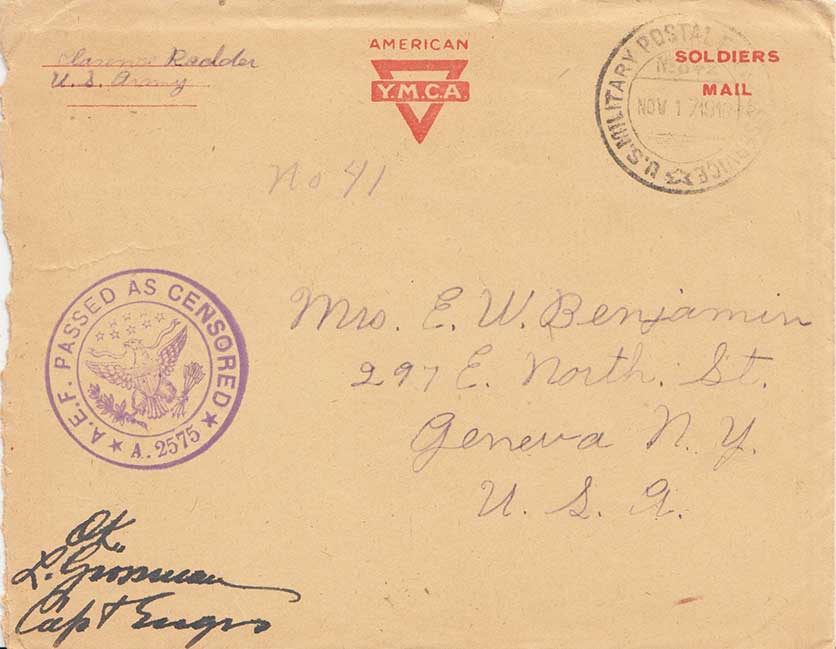 Clarence Radder
U. S. Army
AMERICAN
Y.M.C.A.
SOLDIERS
MAIL
U.S. MILITARY POSTAL SERVICE
NOV 17 1918
No 41
A.E.F. PASSED AS CENSORED
A. 2575
Mrs. E. W. Benjamin
297 E. North. St.
Geneva N. Y.
U. S. A.
OK.
L. Grossman
Capt Engrs